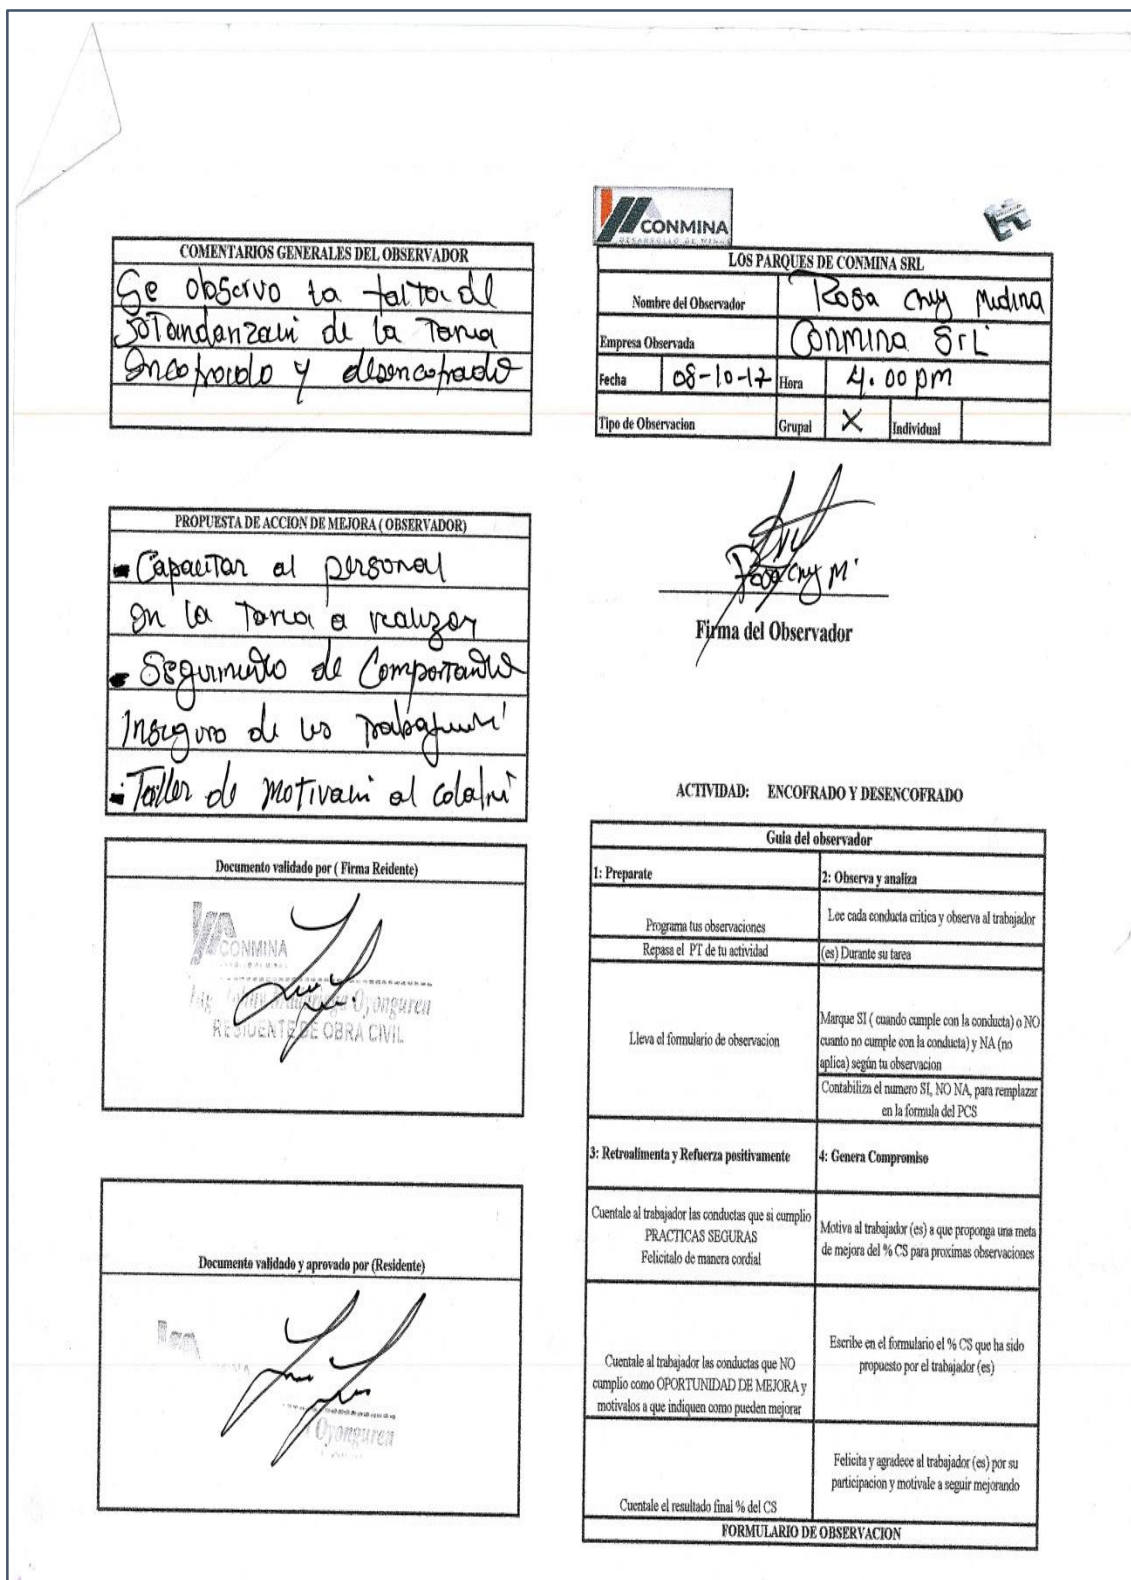 COMENTARIOS GENERALES DEL OBSERVADOR
Se observo la falta de
de la Tarea
encofrado y desencofrado
PROPUESTA DE ACCION DE MEJORA ( OBSERVADOR)
- Capacitar al personal
en la Tarea a realizar
- Seguimiento de
Inseguro de los
- Taller de al
Documento validado por ( Firma Reidente)
CONMINA
Ing. Oyonguren
RESIDENTE DE OBRA CIVIL
Documento validado y aprovado por (Residente)
Oyonguren
CONMINA
DESARROLLO DE MINAS
LOS PARQUES DE CONMINA SRL
Nombre del Observador Rosa Medina
Empresa Observada Conmina SrL
Fecha 08-10-17 Hora 4.00 pm
Tipo de Observacion Grupal X Individual
Rosa M.
Firma del Observador
ACTIVIDAD: ENCOFRADO Y DESENCOFRADO
Guia del observador
1: Preparate
2: Observa y analiza
Programa tus observaciones
Lee cada conducta critica y observa al trabajador
Repasa el PT de tu actividad
(es) Durante su tarea
Lleva el formulario de observacion
Marque SI ( cuando cumple con la conducta) o NO
cuanto no cumple con la conducta) y NA (no
aplica) según tu observacion
Contabiliza el numero SI, NO NA, para remplazar
en la formula del PCS
3: Retroalimenta y Refuerza positivamente
4: Genera Compromiso
Cuentale al trabajador las conductas que si cumplio
PRACTICAS SEGURAS
Felicitalo de manera cordial
Motiva al trabajador (es) a que proponga una meta
de mejora del % CS para proximas observaciones
Cuentale al trabajador las conductas que NO
cumplio como OPORTUNIDAD DE MEJORA y
motivalos a que indiquen como pueden mejorar
Escribe en el formulario el % CS que ha sido
propuesto por el trabajador (es)
Cuentale el resultado final % del CS
Felicita y agradece al trabajador (es) por su
participacion y motivale a seguir mejorando
FORMULARIO DE OBSERVACION